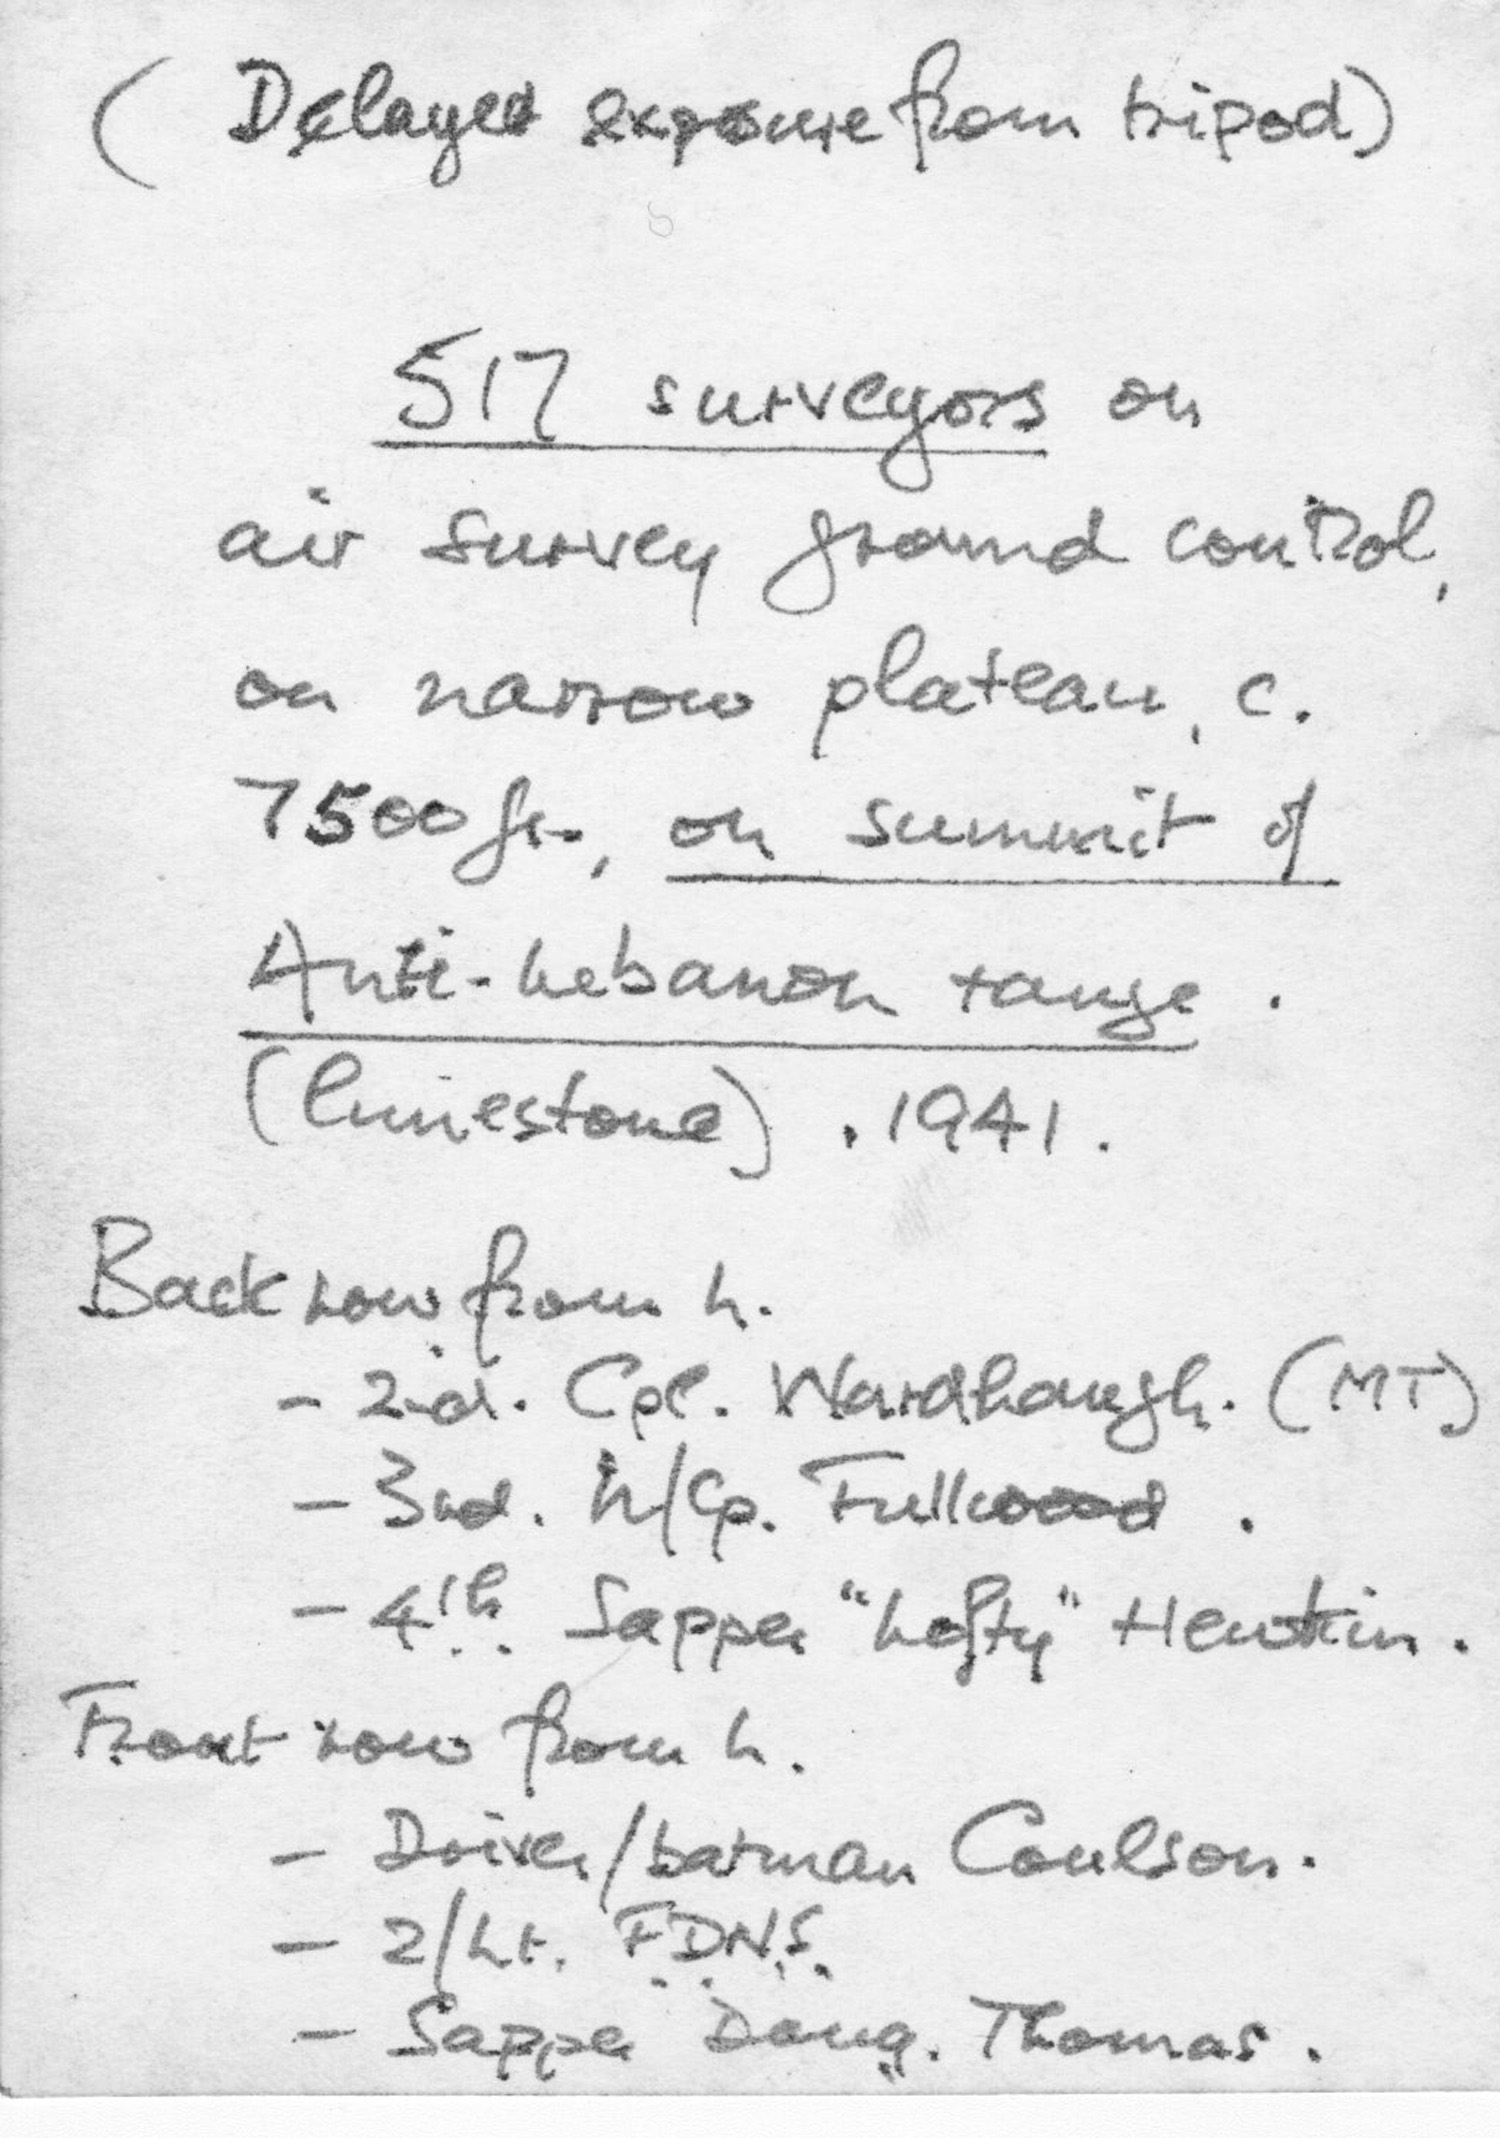 (Delayed exposure from tripod)
517 surveyors on
air survey ground control,
on narrow plateau, c.
7500 ft., on summit of
Anti-Lebanon range.
(limestone). 1941.
Back row from L.
- 2nd. Cpl. Wardhaugh. (MT)
- 3rd. L/Cp. Fullwood.
- 4th. Sapper "Lofty" Hentkin.
Front row from L.
- Driver/batman Coulson.
- 2/Lt. F.D.N.S.
- Sapper Doug. Thomas.